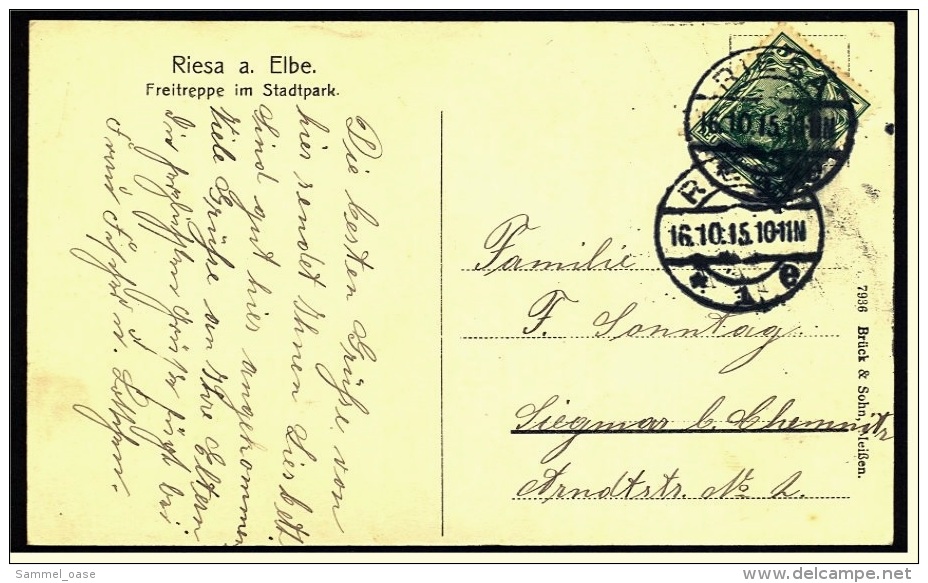 Riesa a. Elbe.
Freitreppe im Stadtpark.
Die besten Grüße von
hier sendet Ihnen Liesbett.
Sind gut hier angekommen
Viele Grüße an Ihre Eltern
Die herzlichsten Grüße fügt bei
Frau Fischer u.
RIESA
16.10.15.10-11N
R
16.10.15.10-11N
* 1 e
Familie
F. Sonntag
Siegmar b. Chemnitz
Arndtstr. No 2.
7936 Brück & Sohn, Meißen.
Sammel_oase
www.delcampe.net